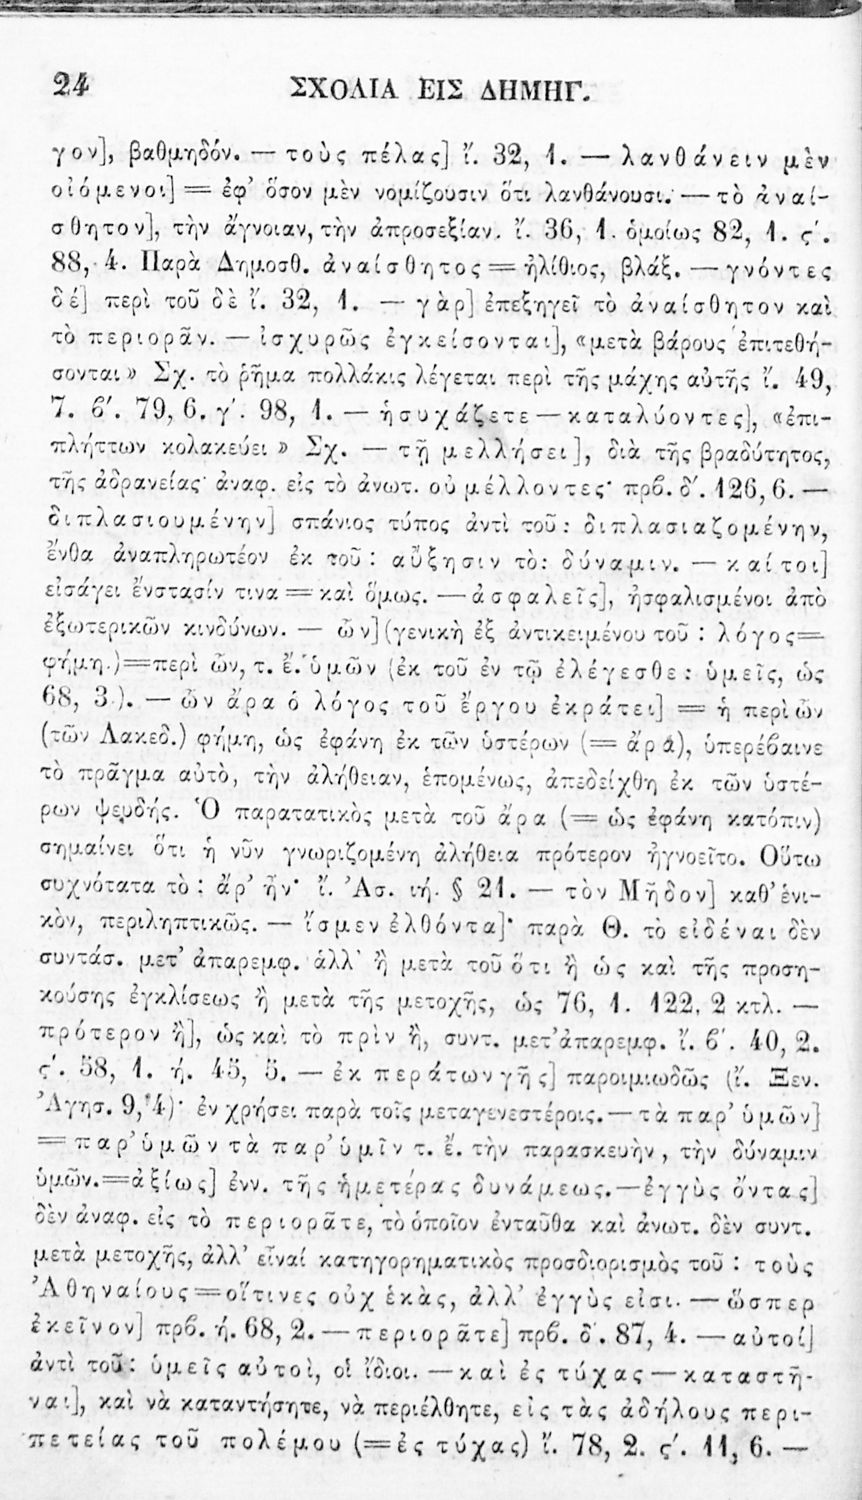 24 ΣΧΟΛΙΑ ΕΙΣ ΔΗΜΗΓ.
γον], βαθμηδόν. — τοὺς πέλας] ἴ. 32, 1. — λανθάνειν μὲν
οἰόμενοι] = ἐφ' ὅσον μὲν νομίζουσιν ὅτι λανθάνουσι. — τὸ ἀναί-
σθητον], τὴν ἄγνοιαν, τὴν ἀπροσεξίαν. ἴ. 36, 1. ὁμοίως 82, 1. ϛ'.
88, 4. Παρὰ Δημοσθ. ἀναίσθητος = ἠλίθιος, βλάξ. — γνόντες
δέ] περὶ τοῦ δὲ ἴ. 32, 1. — γὰρ] ἐπεξηγεῖ τὸ ἀναίσθητον καὶ
τὸ περιορᾶν. — ἰσχυρῶς ἐγκείσονται], «μετὰ βάρους ἐπιτεθή-
σονται» Σχ. τὸ ῥῆμα πολλάκις λέγεται περὶ τῆς μάχης αὐτῆς ἴ. 49,
7. β'. 79, 6. γ'. 98, 1. — ἡσυχάζετε — καταλύοντες], «ἐπι-
πλήττων κολακεύει» Σχ. — τῇ μελλήσει], διὰ τῆς βραδύτητος,
τῆς ἀδρανείας· ἀναφ. εἰς τὸ ἀνωτ. οὐ μέλλοντες· πρβ. δ'. 126, 6. —
διπλασιουμένην] σπάνιος τύπος ἀντὶ τοῦ: διπλασιαζομένην,
ἔνθα ἀναπληρωτέον ἐκ τοῦ: αὔξησιν τὸ: δύναμιν. — καίτοι]
εἰσάγει ἔνστασίν τινα = καὶ ὅμως. — ἀσφαλεῖς], ἠσφαλισμένοι ἀπὸ
ἐξωτερικῶν κινδύνων. — ὧν] (γενικὴ ἐξ ἀντικειμένου τοῦ: λόγος =
φήμη.) = περὶ ὧν, τ. ἔ. ὑμῶν (ἐκ τοῦ ἐν τῷ ἐλέγεσθε: ὑμεῖς, ὡς
68, 3.). — ὧν ἄρα ὁ λόγος τοῦ ἔργου ἐκράτει] = ἡ περὶ ὧν
(τῶν Λακεδ.) φήμη, ὡς ἐφάνη ἐκ τῶν ὑστέρων (= ἄρα), ὑπερέβαινε
τὸ πρᾶγμα αὐτὸ, τὴν ἀλήθειαν, ἑπομένως, ἀπεδείχθη ἐκ τῶν ὑστέ-
ρων ψευδής. Ὁ παρατατικὸς μετὰ τοῦ ἄρα (= ὡς ἐφάνη κατόπιν)
σημαίνει ὅτι ἡ νῦν γνωριζομένη ἀλήθεια πρότερον ἠγνοεῖτο. Οὕτω
συχνότατα τὸ: ἄρ' ἦν· ἴ. Ἀσ. ιή. § 21. — τὸν Μῆδον] καθ' ἑνι-
κὸν, περιληπτικῶς. — ἴσμεν ἐλθόντα]· παρὰ Θ. τὸ εἰδέναι δὲν
συντάσ. μετ' ἀπαρεμφ. ἀλλ' ἢ μετὰ τοῦ ὅτι ἢ ὡς καὶ τῆς προση-
κούσης ἐγκλίσεως ἢ μετὰ τῆς μετοχῆς, ὡς 76, 1. 122, 2 κτλ. —
πρότερον ἢ], ὡς καὶ τὸ πρὶν ἢ, συντ. μετ' ἀπαρεμφ. ἴ. β'. 40, 2.
ϛ'. 58, 1. ή. 45, 5. — ἐκ περάτων γῆς] παροιμιωδῶς (ἴ. Ξεν.
Ἀγησ. 9, 4)· ἐν χρήσει παρὰ τοῖς μεταγενεστέροις. — τὰ παρ' ὑμῶν]
= παρ' ὑμῶν τὰ παρ' ὑμῖν τ. ἔ. τὴν παρασκευὴν, τὴν δύναμιν
ὑμῶν. = ἀξίως] ἐνν. τῆς ἡμετέρας δυνάμεως. — ἐγγὺς ὄντας]
δὲν ἀναφ. εἰς τὸ περιορᾶτε, τὸ ὁποῖον ἐνταῦθα καὶ ἀνωτ. δὲν συντ.
μετὰ μετοχῆς, ἀλλ' εἶναί κατηγορηματικὸς προσδιορισμὸς τοῦ: τοὺς
Ἀθηναίους = οἵτινες οὐχ ἑκὰς, ἀλλ' ἐγγὺς εἰσι. — ὥσπερ
ἐκεῖνον] πρβ. ή. 68, 2. — περιορᾶτε] πρβ. δ'. 87, 4. — αὐτοί]
ἀντὶ τοῦ: ὑμεῖς αὐτοὶ, οἱ ἴδιοι. — καὶ ἐς τύχας — καταστῆ-
ναι], καὶ νὰ καταντήσητε, νὰ περιέλθητε, εἰς τὰς ἀδήλους περι-
πετείας τοῦ πολέμου (= ἐς τύχας) ἴ. 78, 2. ϛ'. 11, 6. —